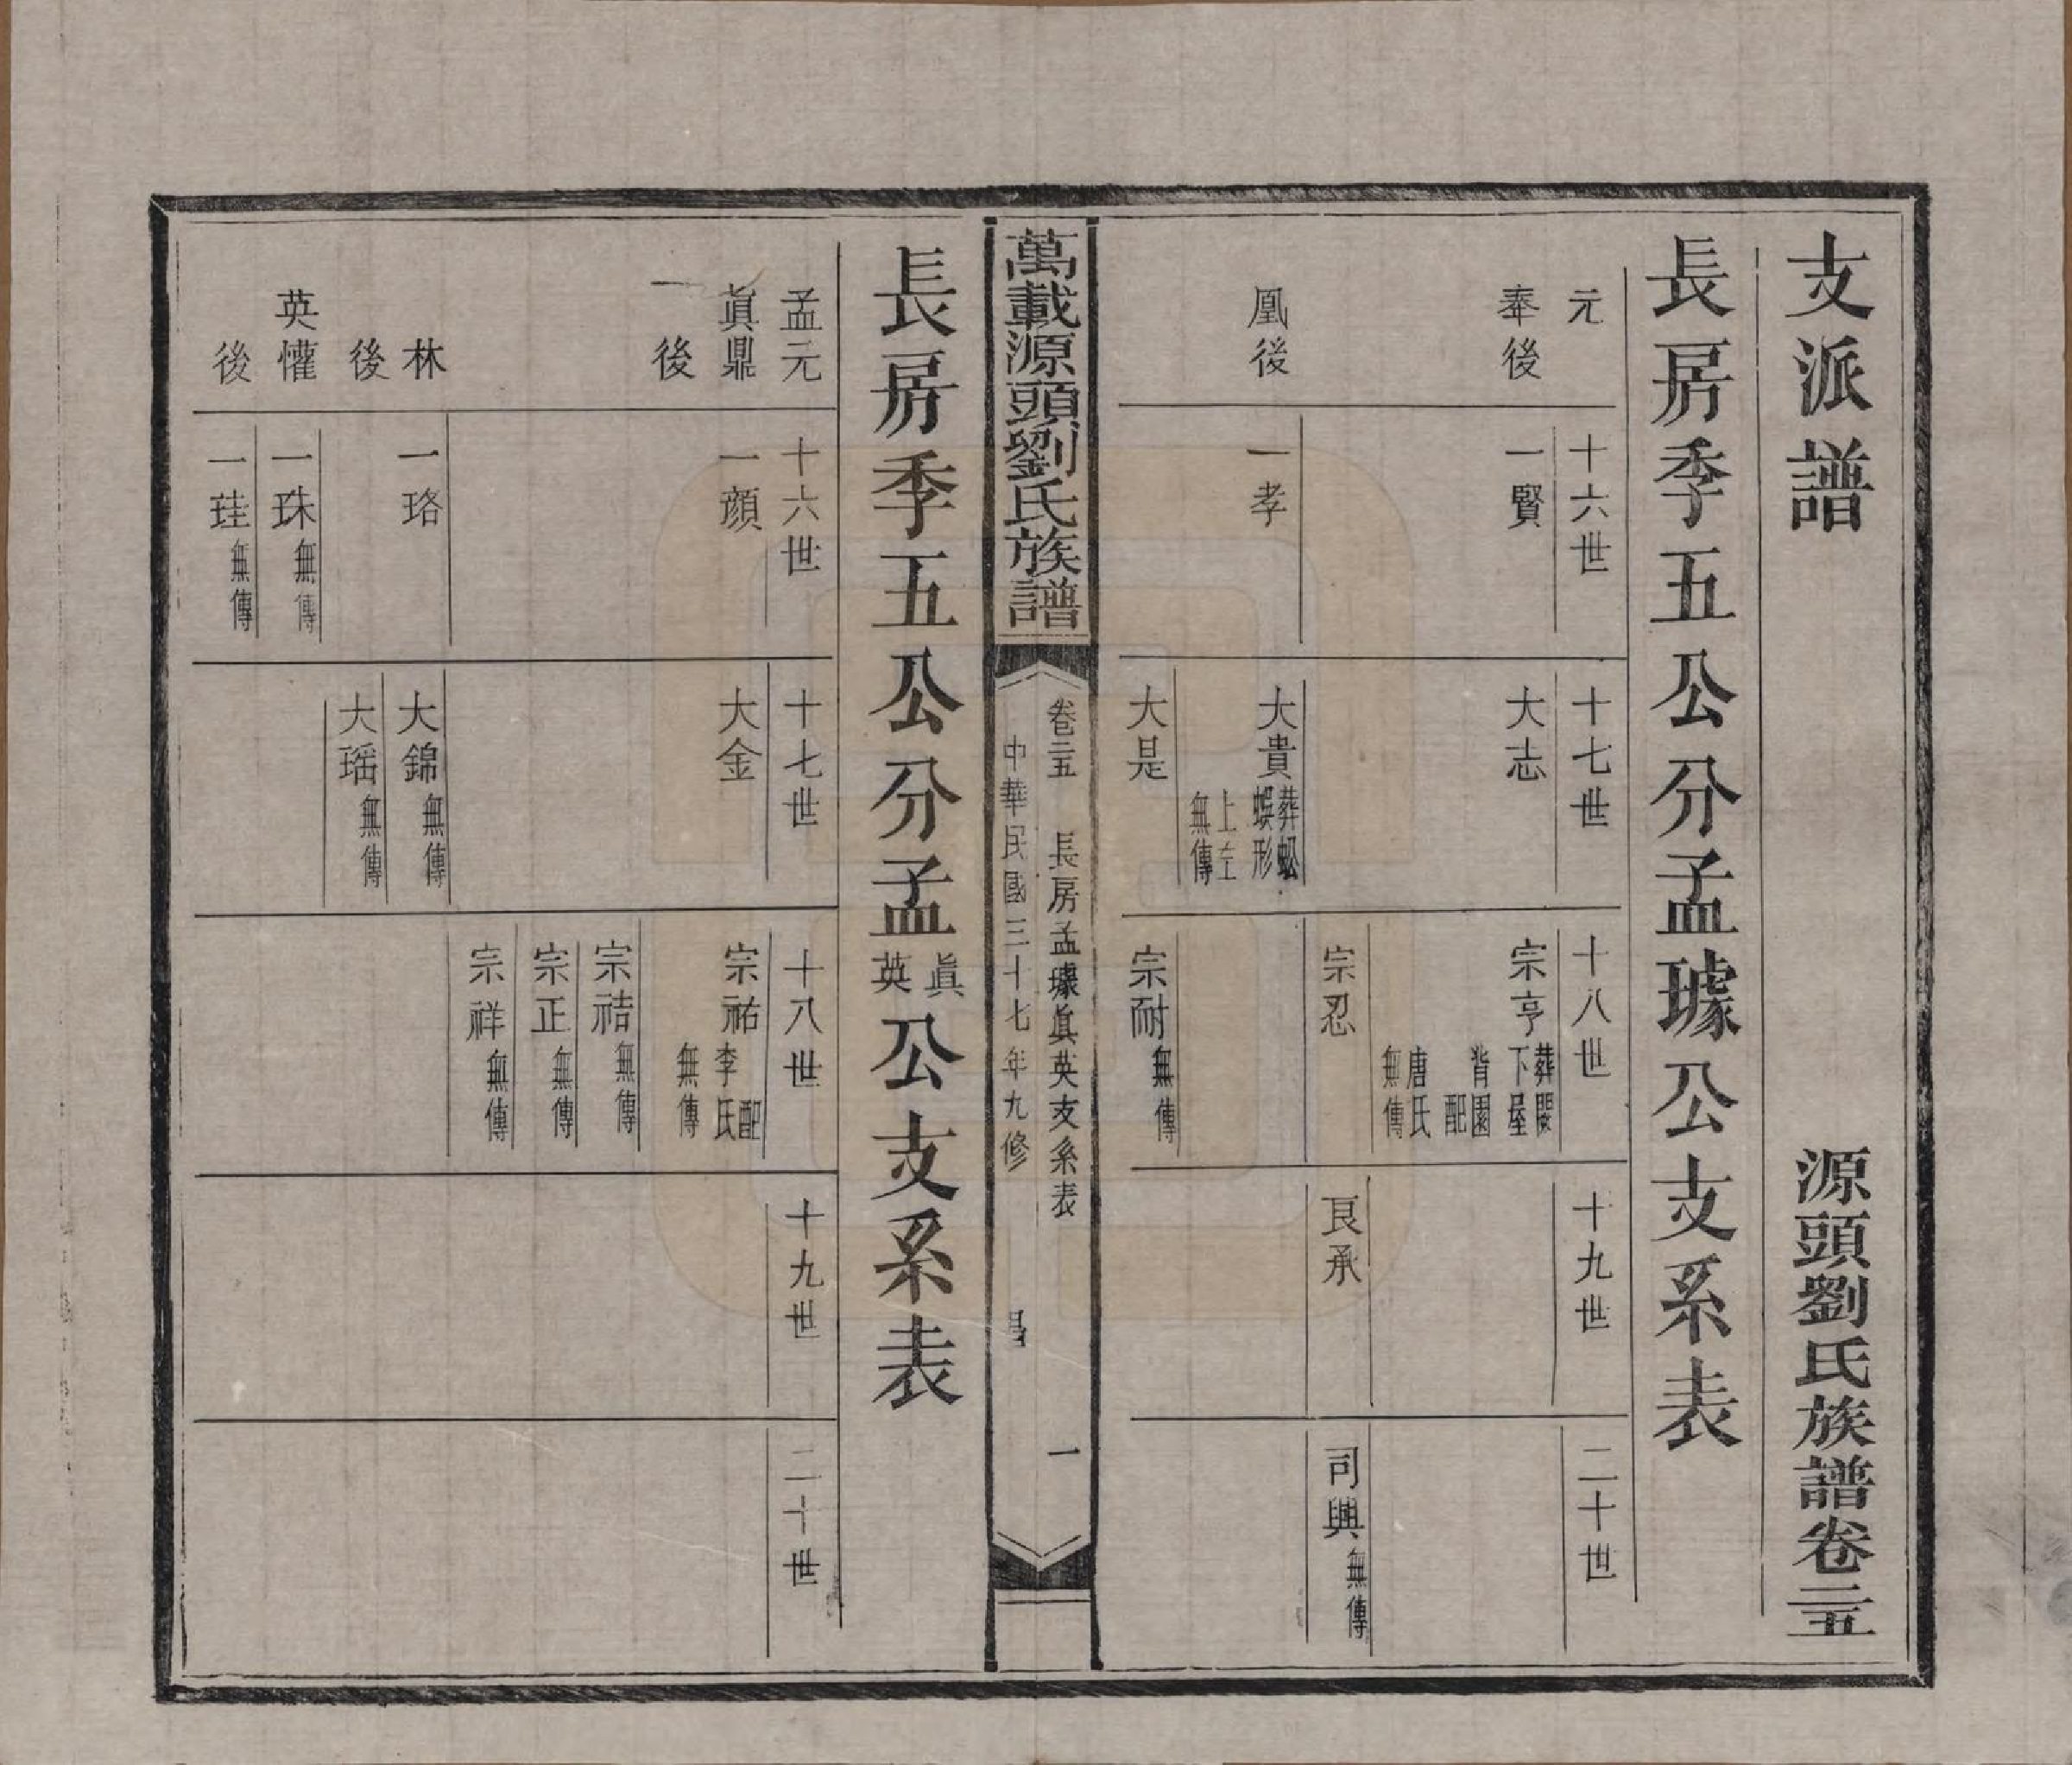 支派譜
源頭劉氏族譜卷二五
長房季五公分孟璩公支系表
元
奉後
凰後
十六世
一賢
一孝
十七世
大志
大貴
葬蚣
蜈形
上左
無傳
大是
十八世
宗亨
葬閿
下屋
背園
配
唐氏
無傳
宗忍
宗耐無傳
十九世
良承
二十世
司興無傳
萬載源頭劉氏族譜
卷二五
長房孟璩眞英支系表
一
中華民國三十七年九修
長房季五公分孟眞英公支系表
孟元
眞鼎
一後
林
後
英懽
後
十六世
一顔
一珞
一珠無傳
一珪無傳
十七世
大金
大錦無傳
大瑶無傳
十八世
宗祐
配
李氏
無傳
宗祮無傳
宗正無傳
宗祥無傳
十九世
二十世